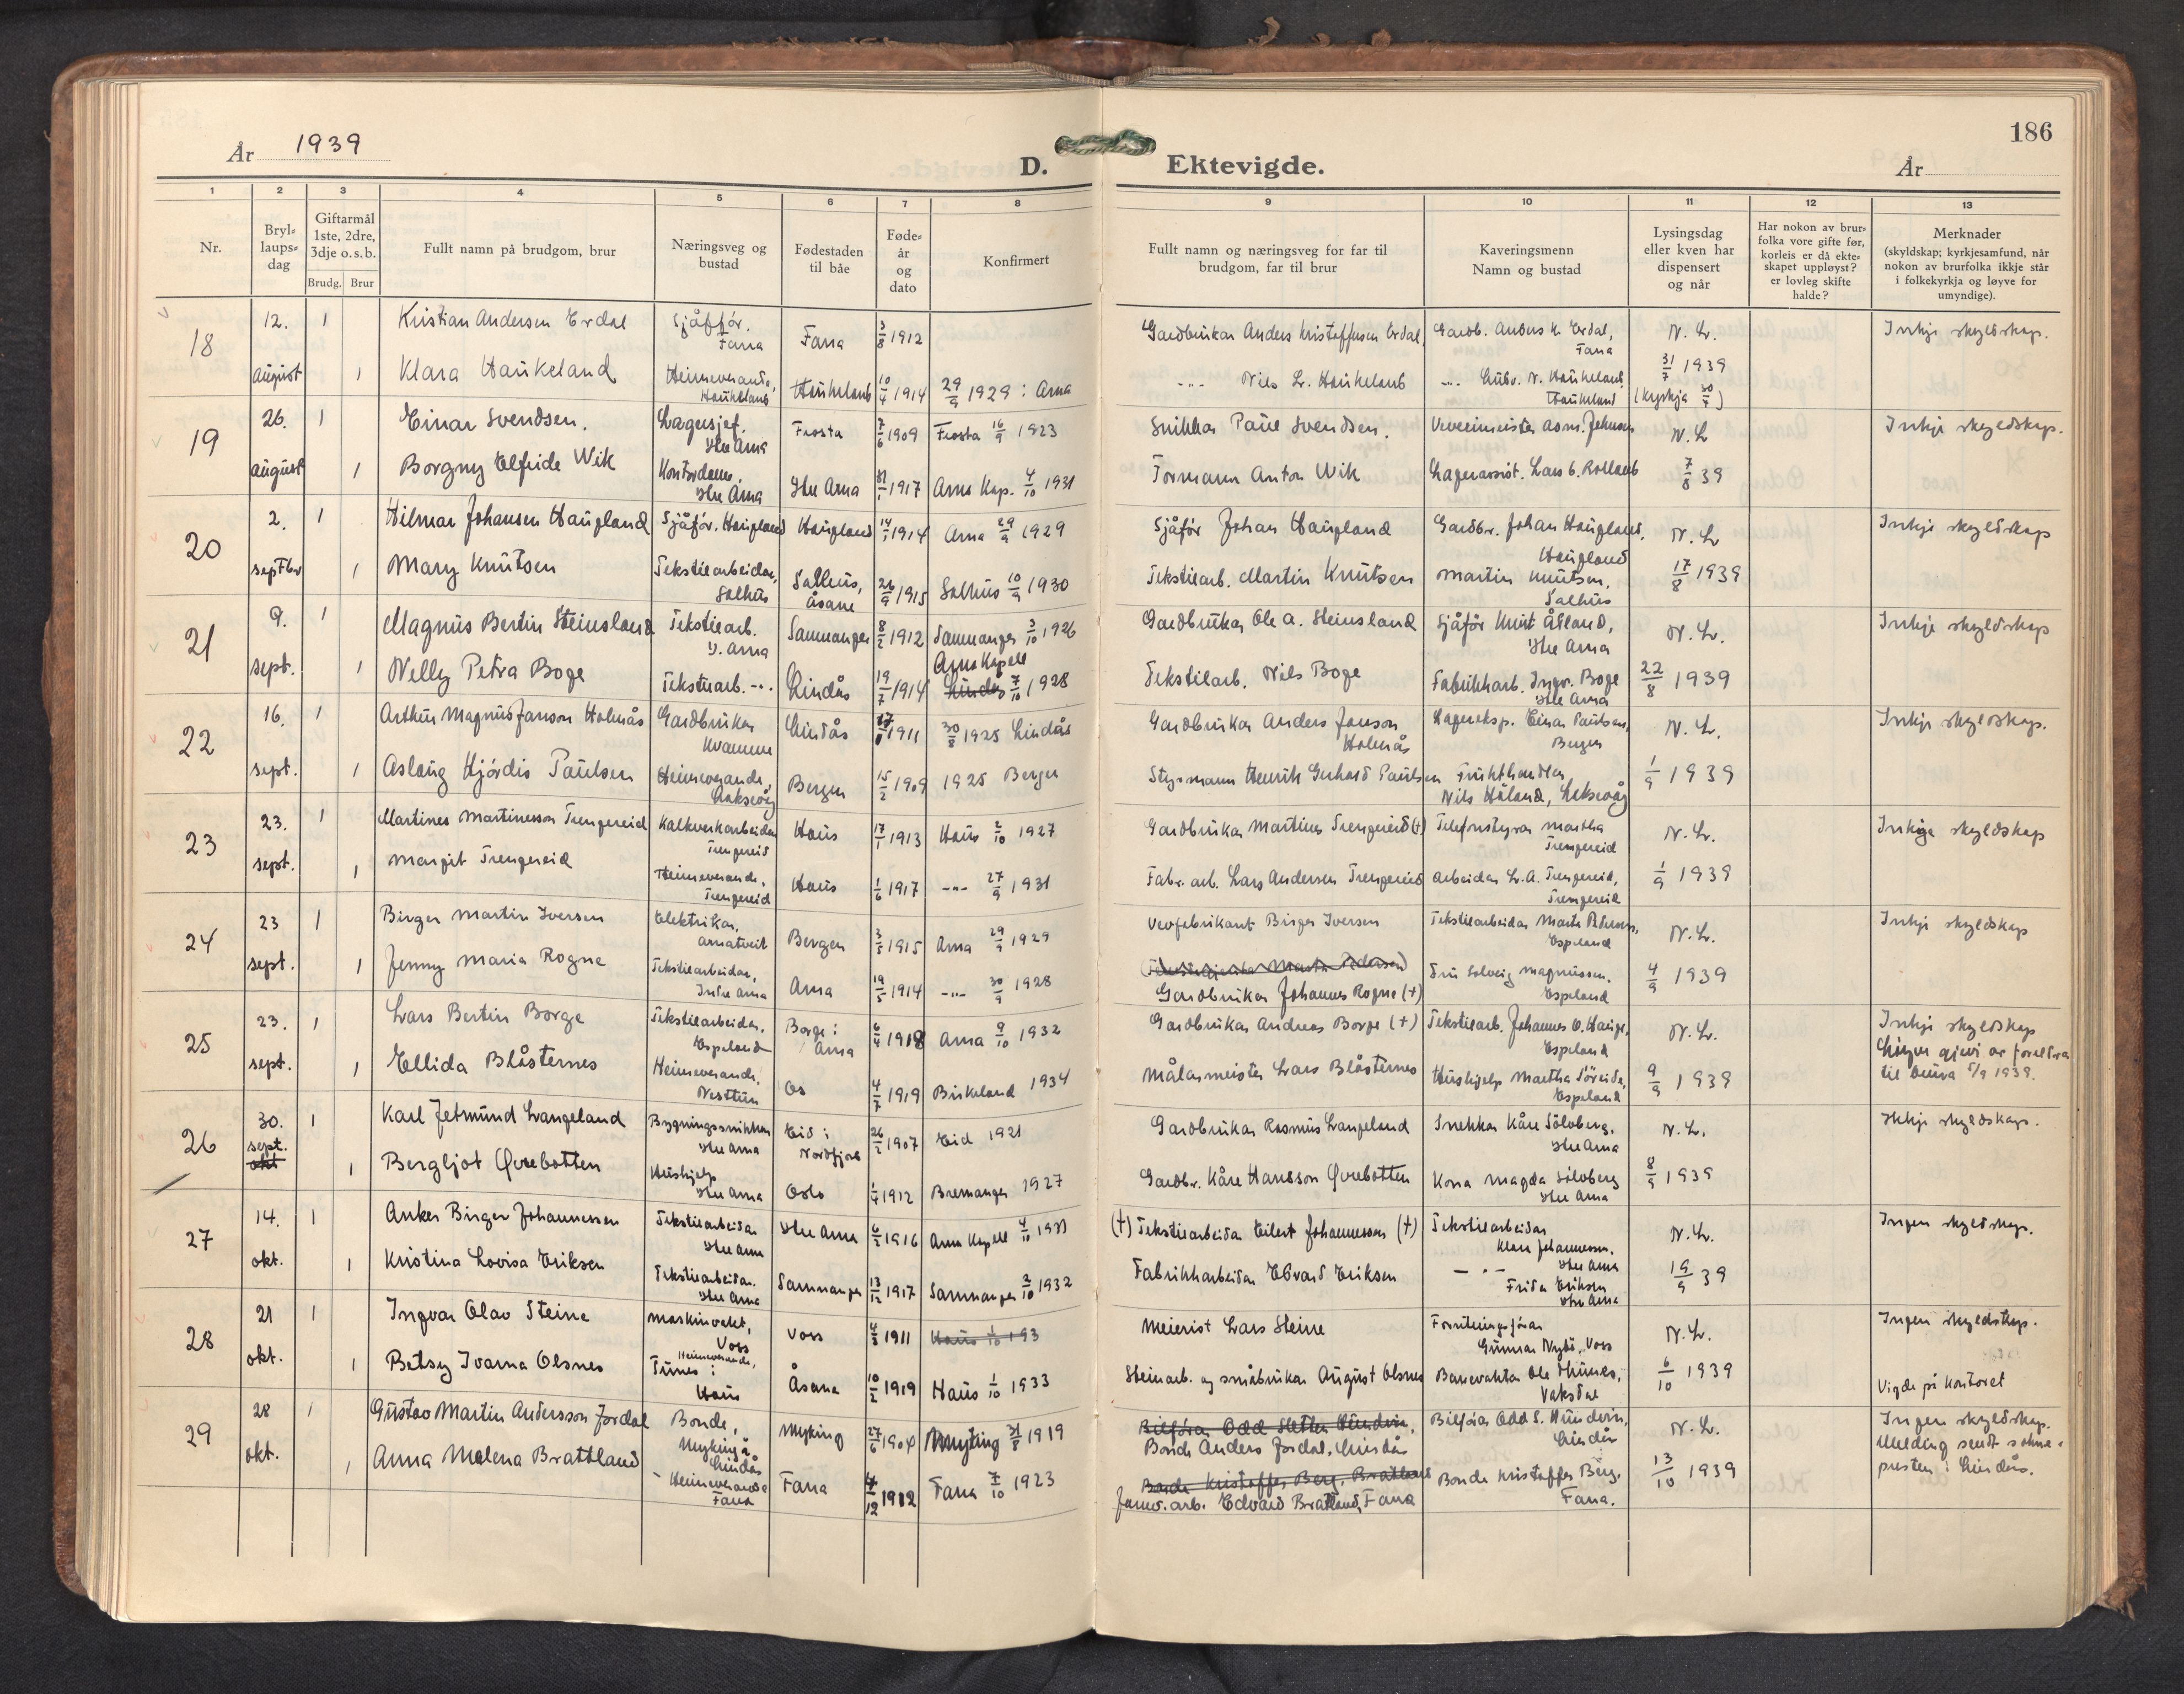 År 1939
D. Ektevigde.
186
År
1 2 3 4 5 6 7 8 9 10 11 12 13
Nr.
Bryl-
laups-
dag
Giftarmål
1ste, 2dre,
3dje o.s.b.
Brudg. Brur
Fullt namn på brudgom, brur
Næringsveg og
bustad
Fødestaden
til båe
Føde-
år
og
dato
Konfirmert
Fullt namn og næringsveg for far til
brudgom, far til brur
Kaveringsmenn
Namn og bustad
Lysingsdag
eller kven har
dispensert
og når
Har nokon av brur-
folka vore gifte før,
korleis er då ekte-
skapet uppløyst?
er lovleg skifte
halde?
Merknader
(skyldskap; kyrkjesamfund, når
nokon av brurfolka ikkje står
i folkekyrkja og løyve for
umyndige).
18 12. 1 Kristian Andersen Erdal Sjåffør. Fana Fana 3/8 1912 Gardbrukar Anders Kristoffersen Erdal, Gardb. Anders K. Erdal, Fana N. L. Inkje skyldskap.
august 1 Klara Haukeland Heimeverande, Haukeland Haukeland 10/4 1914 29/9 1929 : Arna -"- Nils L. Haukeland -"- Gudv. N. Haukeland, Haukeland 31/7 1939 (kyrkja 30/7)
19 26. 1 Einar Svendsen. Lagersjef. Ytre Arna Frosta 7/6 1909 Frosta 16/9 1923 Snikkar Paul Svendsen. Vevemeister Asm. Johnsen N. L Inkje skyldskap.
august 1 Borgny Elfride Wik Kontordame. Ytre Arna Ytre Arna 31/1 1917 Arna Kap. 4/10 1931 Formann Anton Wik Lagerassist. Lars b. Rolland 7/8 39
20 2. 1 Hilmar Johansen Haugland Sjåfør. Haugland Haugland 14/1 1914 Arna 29/9 1929 Sjåfør Johan Haugland Gardbr. Johan Haugland, Haugland N. L Inkje skyldskap
septbr 1 Mary Knutsen Tekstilarbeidar, Salhus Salhus, Åsane 26/9 1915 Salhus 10/9 1930 Tekstilarb. Martin Knutsen Martin Knutsen, Salhus 17/8 1939
21 9. 1 Magnus Bertin Steinsland Tekstilarb. Y. Arna Samnanger 8/2 1912 Samnanger 3/10 1926 Gardbrukar Ole A. Steinsland Sjåfør Knut Åsland, Ytre Arna N. L. Inkje skyldskap
sept. 1 Nelly Petra Boge Tekstilarb. -"- Lindås 19/7 1914 Arna Kapell Lindås 7/10 1928 Tekstilarb. Nils Boge Fabrikkarb. Ingv. Boge Ytre Arna 22/8 1939
22 16. 1 Arthur Magnus Janson Holmås Gardbrukar Kvamme Lindås 1911 30/8 1925 Lindås Gardbrukar Anders Janson Holmås Lagereksp. Einar Paulsen, Bergen N. L. Inkje skyldskap.
sept. 1 Aslaug Hjördis Paulsen Heimeverande, Laksevåg Bergen 15/2 1909 1925 Bergen Styrmann Henrik Gerhard Paulsen Frukthandlar Nils Håland, Laksevåg 1/9 1939
23 23. 1 Martines Martinesson Trengereid Kalkverkarbeidar Trengereid Haus 17/1 1913 Haus 2/10 1927 Gardbrukar Martines Trengereid (+) Telefonstyrar Martha Trengereid N. L. Inkje skyldskap
sept. 1 Margit Trengereid Heimeverande, Trengereid Haus 1/6 1917 -"- 27/9 1931 Fabr. arb. Lars Andersen Trengereid Arbeidar L. A. Trengereid, Trengereid 1/9 1939
24 23 1 Birger Martin Iversen Elektrikar, Arnatveit Bergen 3/5 1915 Arna 29/9 1929 Vevfabrikant Birger Iversen Tekstilarbeidar Marta Pedersen, Espeland N. L. Inkje skyldskap
sept. 1 Jenny Maria Rogne Tekstilarbeidar, Indre Arna Arna 19/5 1914 -"- 30/9 1928 Gardbrukar Johannes Rogne (+) Fru Solveig Magnussen. Espeland 4/9 1939
25 23. 1 Lars Bertin Borge Tekstilarbeidar. Espeland Borge i Arna 6/4 1918 Arna 9/10 1932 Gardbrukar Andreas Borge (+) Tekstilarb. Johannes O. Hauge, Espeland N. L. Inkje skyldskap
sept. 1 Ellida Blåsternes Heimeverande, Nesttun Os 4/7 1919 Birkeland 1934 Målarmeister Lars Blåsternes Hushjelp Martha Söreide, Espeland 9/9 1939 Löyve gjevi av foreldra til brura 5/9 1939.
26 30. 1 Karl Jetmund Langeland Bygningssnikkar Ytre Arna Eid i Nordfjord 26/2 1907 Eid 1921 Gardbrukar Rasmus Langeland Snekkar Kåre Sölvberg. Ytre Arna N. L. Ikkje skyldskap.
sept. okt 1 Bergljot Øvrebotten Hushjelp Ytre Arna Oslo 1/4 1912 Bremanger 1927 Gardbr. Kåre Hansson Øvrebotten Kona Magda Sölvberg Ytre Arna 8/9 1939
27 14. 1 Anker Birger Johannessen Tekstilarbeidar Ytre Arna Ytre Arna 6/2 1916 Arna Kapell 4/10 1931 (+) Tekstilarbeidar Eilert Johannessen (+) Tekstilarbeidar Klara Johannessen. Ytre Arna N. L. Ingen skyldskap.
okt. 1 Kristina Lovisa Eriksen Tekstilarbeidar. Ytre Arna Samnanger 13/12 1917 Samnanger 2/10 1932 Fabrikkarbeidar Edvard Eriksen -"- Frida Eriksen Ytre Arna 19/9 39
28 21 1 Ingvar Olav Steine Maskinvakt, Voss Voss 4/3 1911 Haus 1/10 193 Meierist Lars Steine Forretningsførar Gunnar Nybö, Voss N. L. Ingen skyldskap.
okt. 1 Betsy Ivarna Olsnes Heimeverande, Tunes i Haus Åsane 10/2 1919 Haus 1/10 1933 Steinarb. og småbrukar August Olsnes Banevaktar Ole Thunes, Vaksdal 6/10 1939 Vigde på kontoret
29 28 1 Gustav Martin Andersson Jordal Bonde, Myking i Lindås Myking 27/6 1904 Myking 31/8 1919 Bonde Anders Jordal, Lindås Bilförar Odd S. Hundvin, Lindås N. L. Ingen skyldskap.
okt. 1 Anna Malena Brattland Heimeverande Fana Fana 4/12 1912 Fana 7/10 1923 Bonde Kristoffer Berg, Brattland Edvard Brattland, Fana Bonde Kristoffer Berg. Fana. 13/10 1939 Melding sendt sokne-
presten i Lindås.